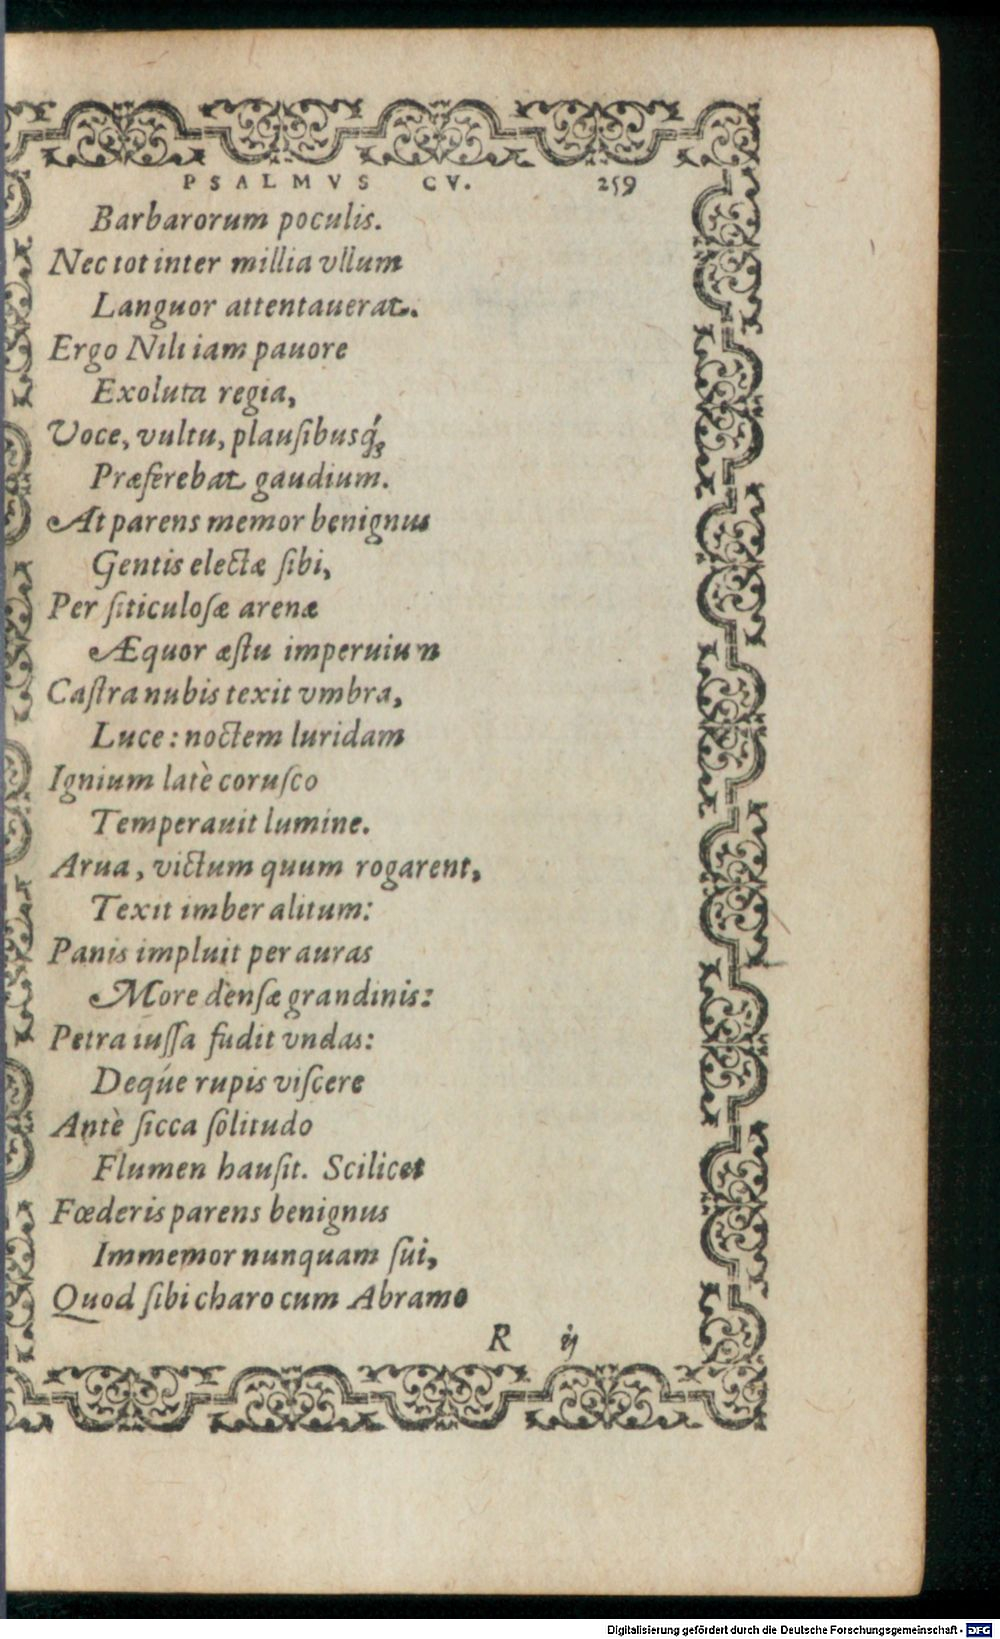 PSALMVS CV. 259
Barbarorum poculis.
Nec tot inter millia vllum
Languor attentauerat.
Ergo Nili iam pauore
Exoluta regia,
Voce, vultu, plauſibusq́;
Præferebat gaudium.
At parens memor benignus
Gentis electæ ſibi,
Per ſiticuloſæ arenæ
Æquor æſtu imperuium
Caſtra nubis texit vmbra,
Luce: noctem luridam
Ignium latè coruſco
Temperauit lumine.
Arua, victum quum rogarent,
Texit imber alitum:
Panis impluit per auras
More denſæ grandinis:
Petra iuſſa fudit vndas:
Deq́ue rupis viſcere
Antè ſicca ſolitudo
Flumen hauſit. Scilicet
Fœderis parens benignus
Immemor nunquam ſui,
Quod ſibi charo cum Abramo
R ij
Digitalisierung gefördert durch die Deutsche Forschungsgemeinschaft - DFG